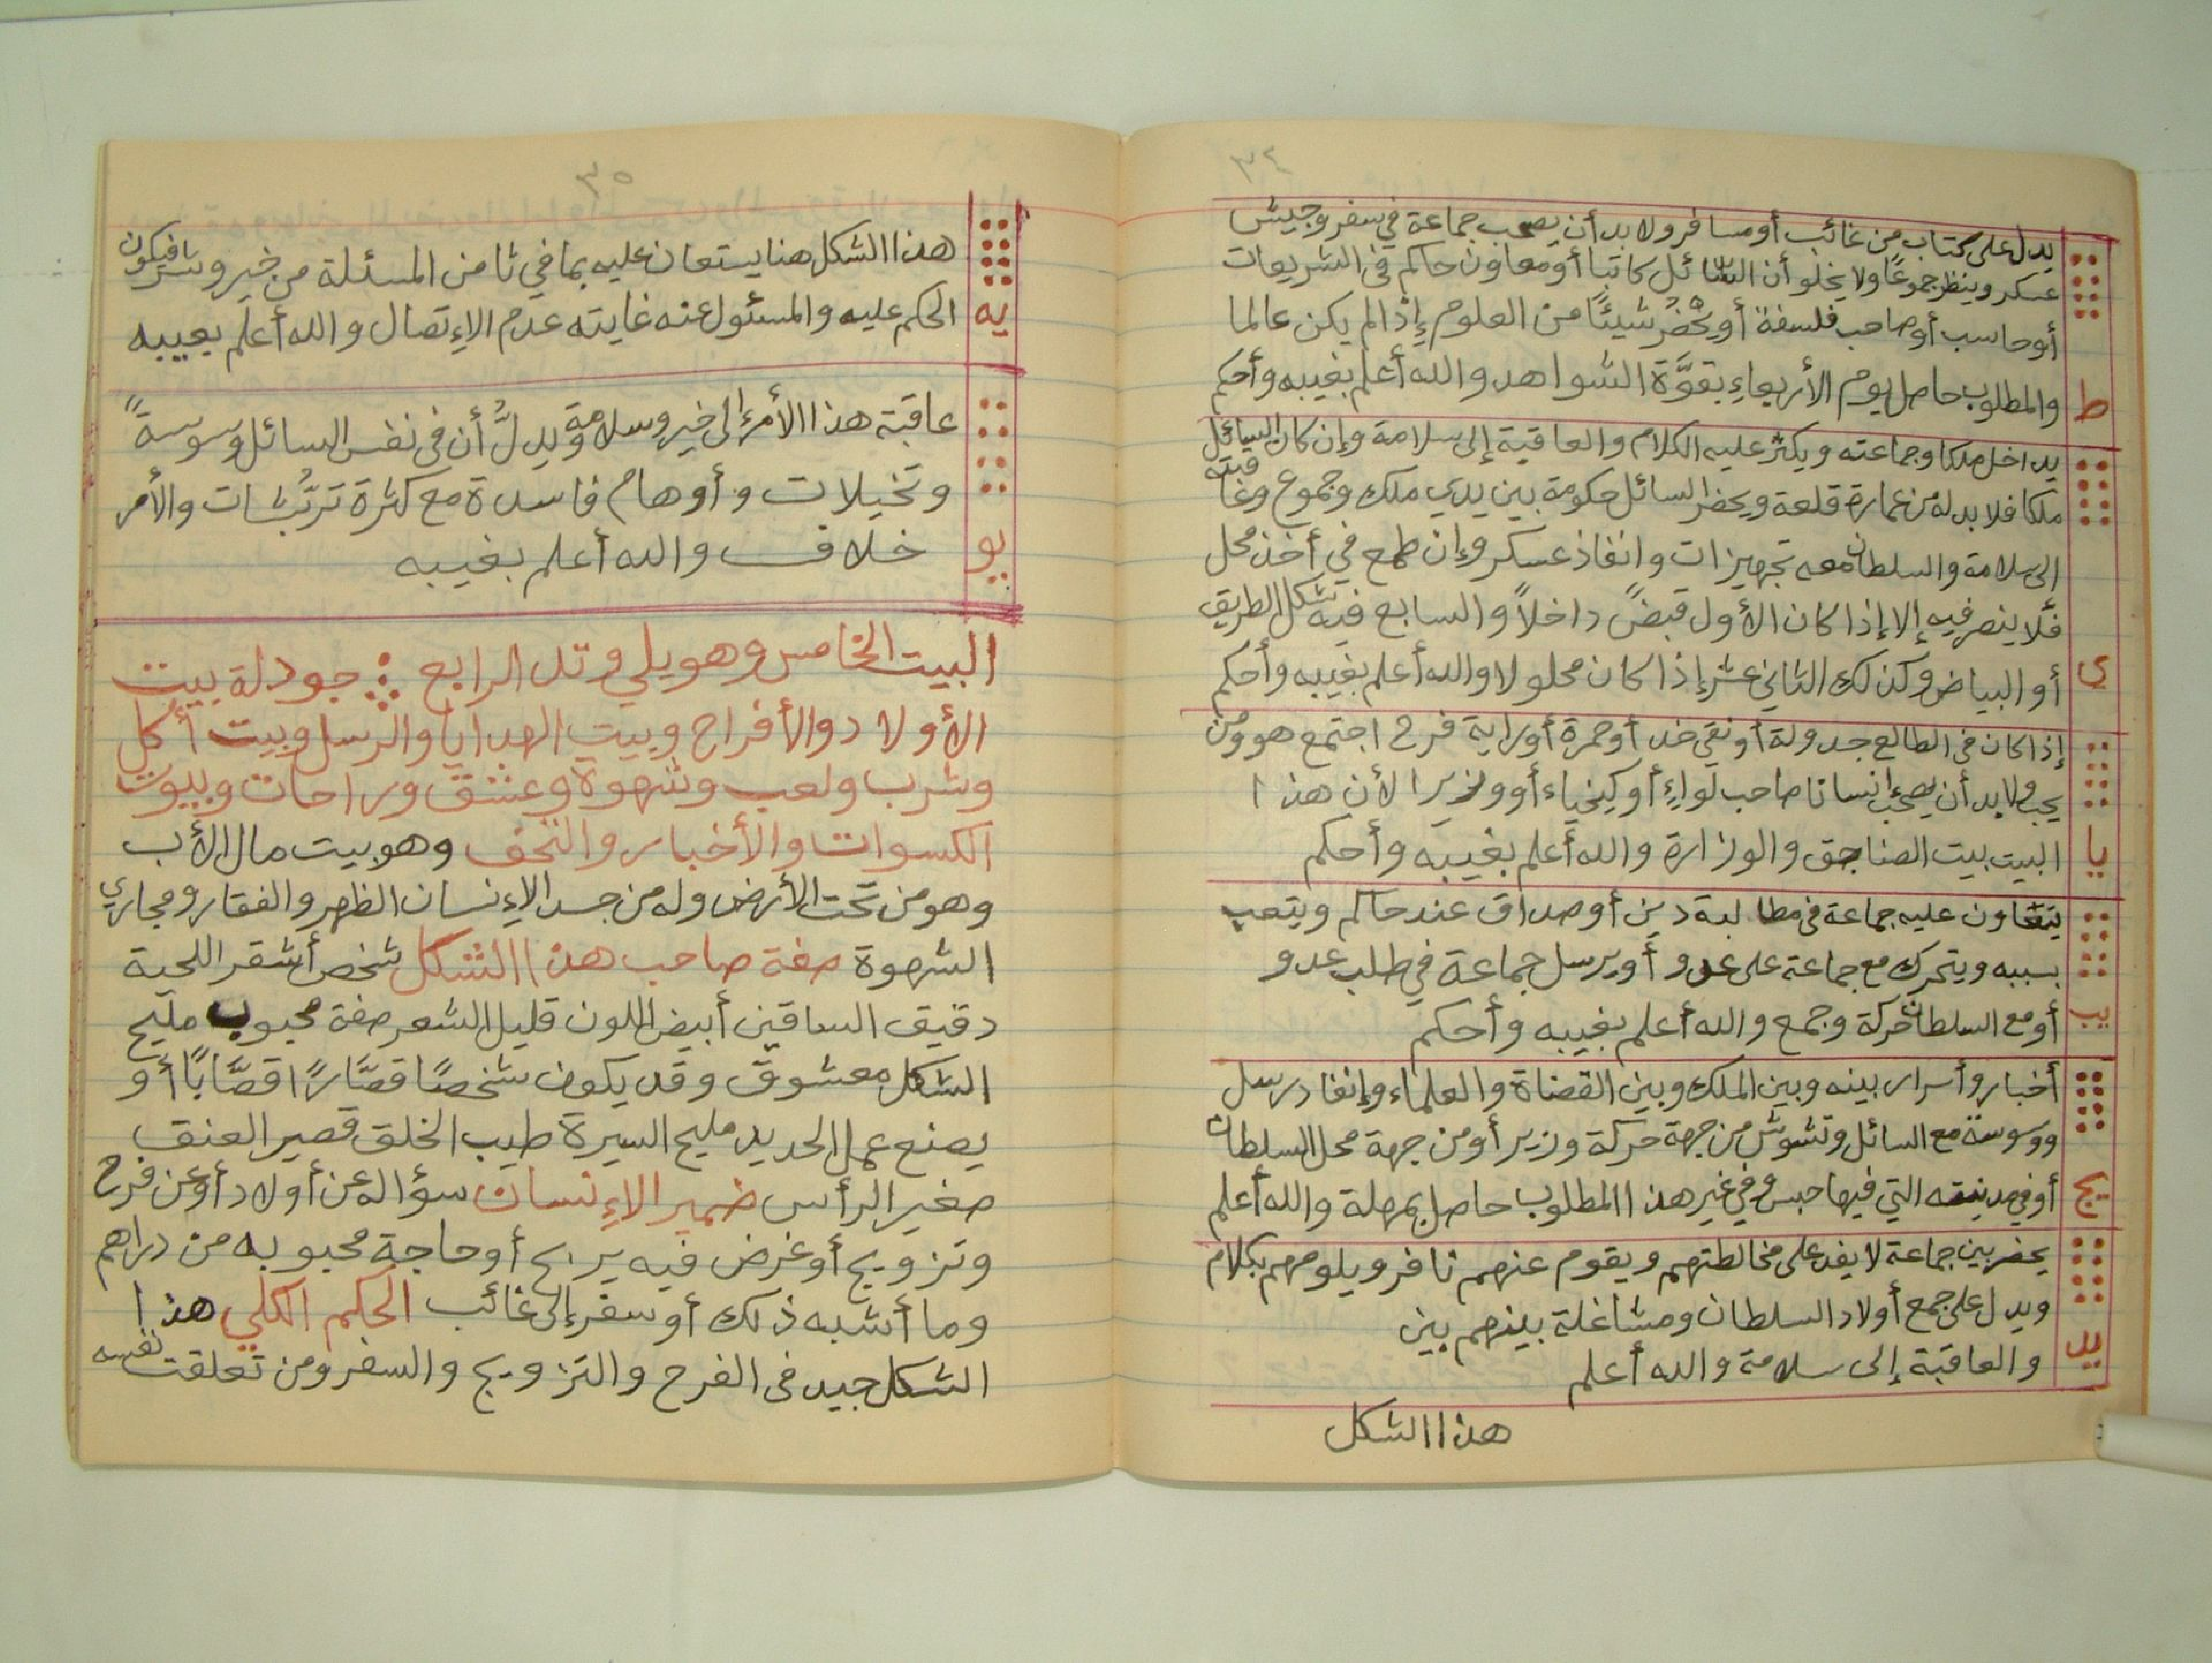 ٣٤
يدل على كتاب من غائب أو مسافر ولا بد أن يصحب جماعة في سفر وجيش
عسكر وينظر جموعًا ولا يخلو أن السائل كاتبا أو معاون حاكم في الشريعات
أو حاسب أو صاحب فلسفة أو يحضر شيئًا من العلوم إذا لم يكن عالما
ط والمطلوب حاصل يوم الأربعاء بقوَّة الشواهد والله أعلم بغيبه وأحكم
يداخل ملكا وجماعته ويكثر عليه الكلام والعاقبة إلى سلامة وإن كان السائل
ملكا فلا بد له من عمارة قلعة ويحضر السائل حكومة بين يدي ملك وجموع وعاقبته
الى سلامة والسلطان معه تجهيزات وانفاذ عسكر وإن طمع في أخذ محل
فلا ينصر فيه إلا إذا كان الأول قبضً داخلاً والسابع فيه شكل الطريق
ي أو البياض وكذلك الثاني عشر إذا كان محلولا والله أعلم بغيبه وأحكم
إذا كان في الطالع جدولة أو نقي خد أو حمرة أو راية فرح اجتمع هو ومن
يحب ولا بد أن يصحب إنسانا صاحب لواء أو كيخياء أو وزيرا لأن هذا
يا البيت بيت الصناجق والوزارة والله أعلم بغيبه وأحكم
يتعاون عليه جماعة في مطالبة دين أو صداق عند حاكم ويتعب
بسببه ويتحرك مع جماعة على عدو أو يرسل جماعة في طلب عدو
يب أو مع السلطان حركة وجمع والله أعلم بغيبه وأحكم
أخبار وأسرار بينه وبين الملك وبين القضاة والعلماء وإنفاد رسل
ووسوسة مع السائل وتشوش من جهة حركة وزير أو من جهة محل السلطان
يج أو في مدينته التي فيها حبس وفي غير هذا المطلوب حاصل بمهلة والله أعلم
يحضر بين جماعة لا يقد على مخالطتهم ويقوم عنهم نافر ويلومهم بكلام
ويدل على جمع أولاد السلطان ومشاغلة بينهم بين
يد والعاقبة إلى سلامة والله أعلم
هذا الشكل
٣٥
هذا الشكل هنا يستعان عليه بما في ثامن المسئلة من خير وشر فيكون
يه الحكم عليه والمسئول عنه غايته عدم الإتصال والله أعلم بغيبه
عاقبة هذا الأمر إلى خير وسلامة ويدلُّ أن في نفس السائل وسوسةً
وتخيلات وأوهام فاسدة مع كثرة ترتُّبات والأمر
يو خلاف والله أعلم بغيبه
البيت الخامس وهو يلي وتد الرابع جودلة بيت
الأولاد والأفراح وبيت الهدايا والرسل وبيت أكل
وشرب ولعب وشهوة وعشق وراحات وبيوت
الكسوات والأخبار والتحف وهو بيت مال الأب
وهو من تحت الأرض وله من جسد الإنسان الظهر والفقار ومجاري
الشهوة صفة صاحب هذا الشكل شخص أشقر اللحية
دقيق الساقين أبيض اللون قليل الشعر صفة محبوب مليح
الشكل معشوق وقد يكون شخصًا قصَّارًا قصَّابًا أو
يصنع عمل الحديد مليح السيرة طيب الخلق قصير العنق
صغير الرأس ضمير الإنسان سؤاله عن أولاد أو عن فرح
وتزويج أو غرض فيه يربح أو حاجة محبوبه من دراهم
وما أشبه ذلك أو سفر إلى غائب الحكم الكلي هذا
الشكل جيد في الفرح والتزويج والسفر ومن تعلقت نفسه